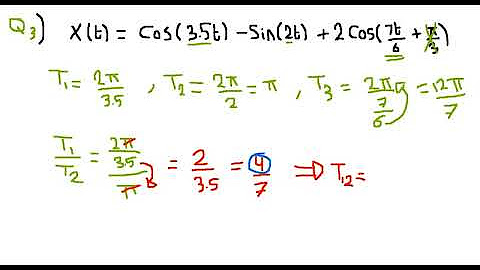 Q3) X(t) = Cos(3.5t) - Sin(2t) + 2Cos(7t/6 + π/3)
T1 = 2π/3.5 , T2 = 2π/2 = π , T3 = 2π/(7/6) = 12π/7
T1/T2 = (2π/3.5)/π = 2/3.5 = 4/7 ⇒ T12 =